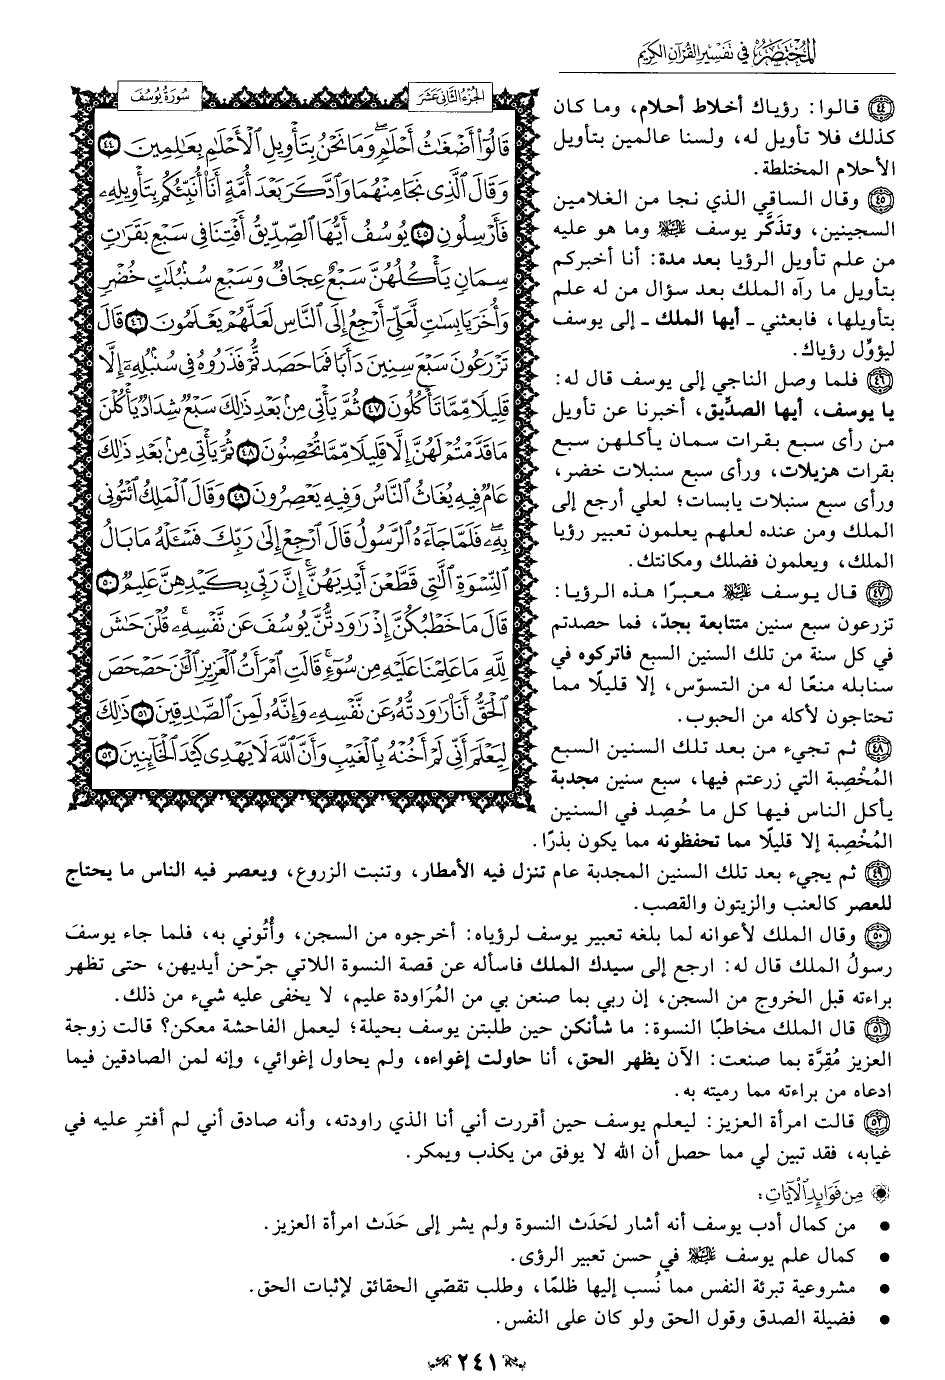 المختصر في تفسير القرآن الكريم
الجزء الثاني عشر
سورة يوسف
قَالُوٓا۟ أَضْغَٰثُ أَحْلَٰمٍ ۖ وَمَا نَحْنُ بِتَأْوِيلِ ٱلْأَحْلَٰمِ بِعَٰلِمِينَ ٤٤
وَقَالَ ٱلَّذِى نَجَا مِنْهُمَا وَٱدَّكَرَ بَعْدَ أُمَّةٍ أَنَا۠ أُنَبِّئُكُم بِتَأْوِيلِهِۦ
فَأَرْسِلُونِ ٤٥ يُوسُفُ أَيُّهَا ٱلصِّدِّيقُ أَفْتِنَا فِى سَبْعِ بَقَرَٰتٍ
سِمَانٍ يَأْكُلُهُنَّ سَبْعٌ عِجَافٌ وَسَبْعِ سُنۢبُلَٰتٍ خُضْرٍ
وَأُخَرَ يَابِسَٰتٍ لَّعَلِّىٓ أَرْجِعُ إِلَى ٱلنَّاسِ لَعَلَّهُمْ يَعْلَمُونَ ٤٦ قَالَ
تَزْرَعُونَ سَبْعَ سِنِينَ دَأَبًا فَمَا حَصَدتُّمْ فَذَرُوهُ فِى سُنۢبُلِهِۦٓ إِلَّا
قَلِيلًا مِّمَّا تَأْكُلُونَ ٤٧ ثُمَّ يَأْتِى مِنۢ بَعْدِ ذَٰلِكَ سَبْعٌ شِدَادٌ يَأْكُلْنَ
مَا قَدَّمْتُمْ لَهُنَّ إِلَّا قَلِيلًا مِّمَّا تُحْصِنُونَ ٤٨ ثُمَّ يَأْتِى مِنۢ بَعْدِ ذَٰلِكَ
عَامٌ فِيهِ يُغَاثُ ٱلنَّاسُ وَفِيهِ يَعْصِرُونَ ٤٩ وَقَالَ ٱلْمَلِكُ ٱئْتُونِى
بِهِۦ ۖ فَلَمَّا جَآءَهُ ٱلرَّسُولُ قَالَ ٱرْجِعْ إِلَىٰ رَبِّكَ فَسْـَٔلْهُ مَا بَالُ
ٱلنِّسْوَةِ ٱلَّٰتِى قَطَّعْنَ أَيْدِيَهُنَّ ۚ إِنَّ رَبِّى بِكَيْدِهِنَّ عَلِيمٌ ٥٠
قَالَ مَا خَطْبُكُنَّ إِذْ رَٰوَدتُّنَّ يُوسُفَ عَن نَّفْسِهِۦ ۚ قُلْنَ حَٰشَ
لِلَّهِ مَا عَلِمْنَا عَلَيْهِ مِن سُوٓءٍ ۚ قَالَتِ ٱمْرَأَتُ ٱلْعَزِيزِ ٱلْـَٰٔنَ حَصْحَصَ
ٱلْحَقُّ أَنَا۠ رَٰوَدتُّهُۥ عَن نَّفْسِهِۦ وَإِنَّهُۥ لَمِنَ ٱلصَّٰدِقِينَ ٥١ ذَٰلِكَ
لِيَعْلَمَ أَنِّى لَمْ أَخُنْهُ بِٱلْغَيْبِ وَأَنَّ ٱللَّهَ لَا يَهْدِى كَيْدَ ٱلْخَآئِنِينَ ٥٢
٤٤ قالوا: رؤياك أخلاط أحلام، وما كان
كذلك فلا تأويل له، ولسنا عالمين بتأويل
الأحلام المختلطة.
٤٥ وقال الساقي الذي نجا من الغلامين
السجينين، وتذَكَّر يوسف عليه السلام وما هو عليه
من علم تأويل الرؤيا بعد مدة: أنا أخبركم
بتأويل ما رآه الملك بعد سؤال من له علم
بتأويلها، فابعثني ـ أيها الملك ـ إلى يوسف
ليؤوِّل رؤياك.
٤٦ فلما وصل الناجي إلى يوسف قال له:
يا يوسف، أيها الصدِّيق، أخبرنا عن تأويل
من رأى سبع بقرات سمان يأكلهن سبع
بقرات هزيلات، ورأى سبع سنبلات خضر،
ورأى سبع سنبلات يابسات؛ لعلي أرجع إلى
الملك ومن عنده لعلهم يعلمون تعبير رؤيا
الملك، ويعلمون فضلك ومكانتك.
٤٧ قال يوسف عليه السلام معبرًا هذه الرؤيا:
تزرعون سبع سنين متتابعة بجدّ، فما حصدتم
في كل سنة من تلك السنين السبع فاتركوه في
سنابله منعًا له من التسوّس، إلا قليلًا مما
تحتاجون لأكله من الحبوب.
٤٨ ثم تجيء من بعد تلك السنين السبع
المُخْصِبة التي زرعتم فيها، سبع سنين مجدبة
يأكل الناس فيها كل ما حُصِد في السنين
المُخْصِبة إلا قليلًا مما تحفظونه مما يكون بذرًا.
٤٩ ثم يجيء بعد تلك السنين المجدبة عام تنزل فيه الأمطار، وتنبت الزروع، ويعصر فيه الناس ما يحتاج
للعصر كالعنب والزيتون والقصب.
٥٠ وقال الملك لأعوانه لما بلغه تعبير يوسف لرؤياه: أخرجوه من السجن، وأْتُوني به، فلما جاء يوسفَ
رسولُ الملك قال له: ارجع إلى سيدك الملك فاسأله عن قصة النسوة اللاتي جرّحن أيديهن، حتى تظهر
براءته قبل الخروج من السجن، إن ربي بما صنعن بي من المُرَاودة عليم، لا يخفى عليه شيء من ذلك.
٥١ قال الملك مخاطبًا النسوة: ما شأنكن حين طلبتن يوسف بحيلة؛ ليعمل الفاحشة معكن؟ قالت زوجة
العزيز مُقِرَّة بما صنعت: الآن يظهر الحق، أنا حاولت إغواءه، ولم يحاول إغوائي، وإنه لمن الصادقين فيما
ادعاه من براءته مما رميته به.
٥٢ قالت امرأة العزيز: ليعلم يوسف حين أقررت أني أنا الذي راودته، وأنه صادق أني لم أفترِ عليه في
غيابه، فقد تبين لي مما حصل أن الله لا يوفق من يكذب ويمكر.
من فوائد الآيات:
• من كمال أدب يوسف أنه أشار لحَدَث النسوة ولم يشر إلى حَدَث امرأة العزيز.
• كمال علم يوسف عليه السلام في حسن تعبير الرؤى.
• مشروعية تبرئة النفس مما نُسب إليها ظلمًا، وطلب تقصّي الحقائق لإثبات الحق.
• فضيلة الصدق وقول الحق ولو كان على النفس.
٢٤١